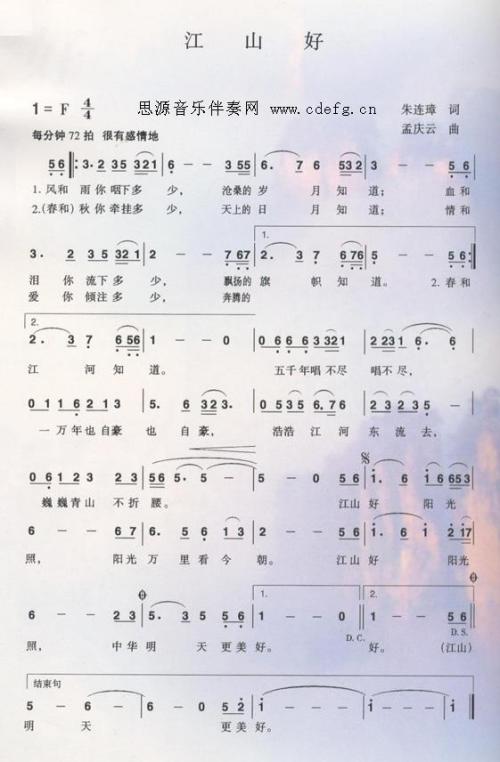 江山好
1=F 4/4 思源音乐伴奏网 www.cdefg.cn 朱连璋 词
每分钟72拍 很有感情地 孟庆云 曲
5 6 3. 2 35 321 6 - - 3 55 6. 7 6 532 3 - - 5 6
1.风和 雨你咽下多 少, 沧桑的岁 月知道; 血和
2.(春和)秋你牵挂多 少, 天上的日 月知道; 情和
1.
3. 2 35 321 2 - - 7 67 2. 3 5 676 5 - - 5 6
泪 你 流下多 少, 飘扬的旗 帜知道。 2.春和
爱 你 倾注多 少, 奔腾的
2.
2. 3 7 656 1 - - 0 0 6 6 6 3 321 2 231 6. 6
江 河知道。 五千年唱不尽 唱不尽,
0 11 6 2 13 5. 6 323. 0 535 6. 76 2 32 35 - -
一万年也自豪 也 自豪, 浩浩江河 东流去,
0 6 1 2 3 2 2 3 5 6 5. 5 - 5 - 0 5 6 1. 6 16 653
巍巍青山 不折腰。 江山好 阳光
6 - - 6 7 6. 56 13 2 - - 5 6 1. 6 2 217
照, 阳光万里看今朝。 江山好 阳光
1. 2.
6 - - 2 3 5. 3 5 56 1 - - 0 1 - - 5 6
D.C. D.S.
照, 中华明 天更美好。 好。 (江山)
结束句
5 - 6 - 6 - 0 5 2 1 - - - 1 - - - 1 - 0
明 天 更美好。